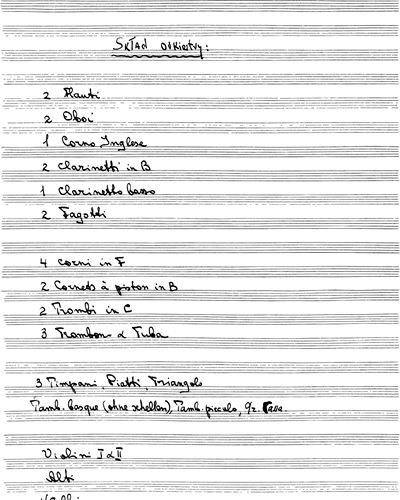 SKŁAD ORKIESTRY:
2 Flauti
2 Oboi
1 Corno Inglese
2 Clarinetti in B
1 Clarinetto basso
2 Fagotti
4 Corni in F
2 Cornets à piston in B
2 Trombi in C
3 Tromboni e Tuba
3 Timpani, Piatti, Triangolo
Tamb. basque (ohne schellen), Tamb. piccolo, gr. Cassa
Violini I e II
Alti